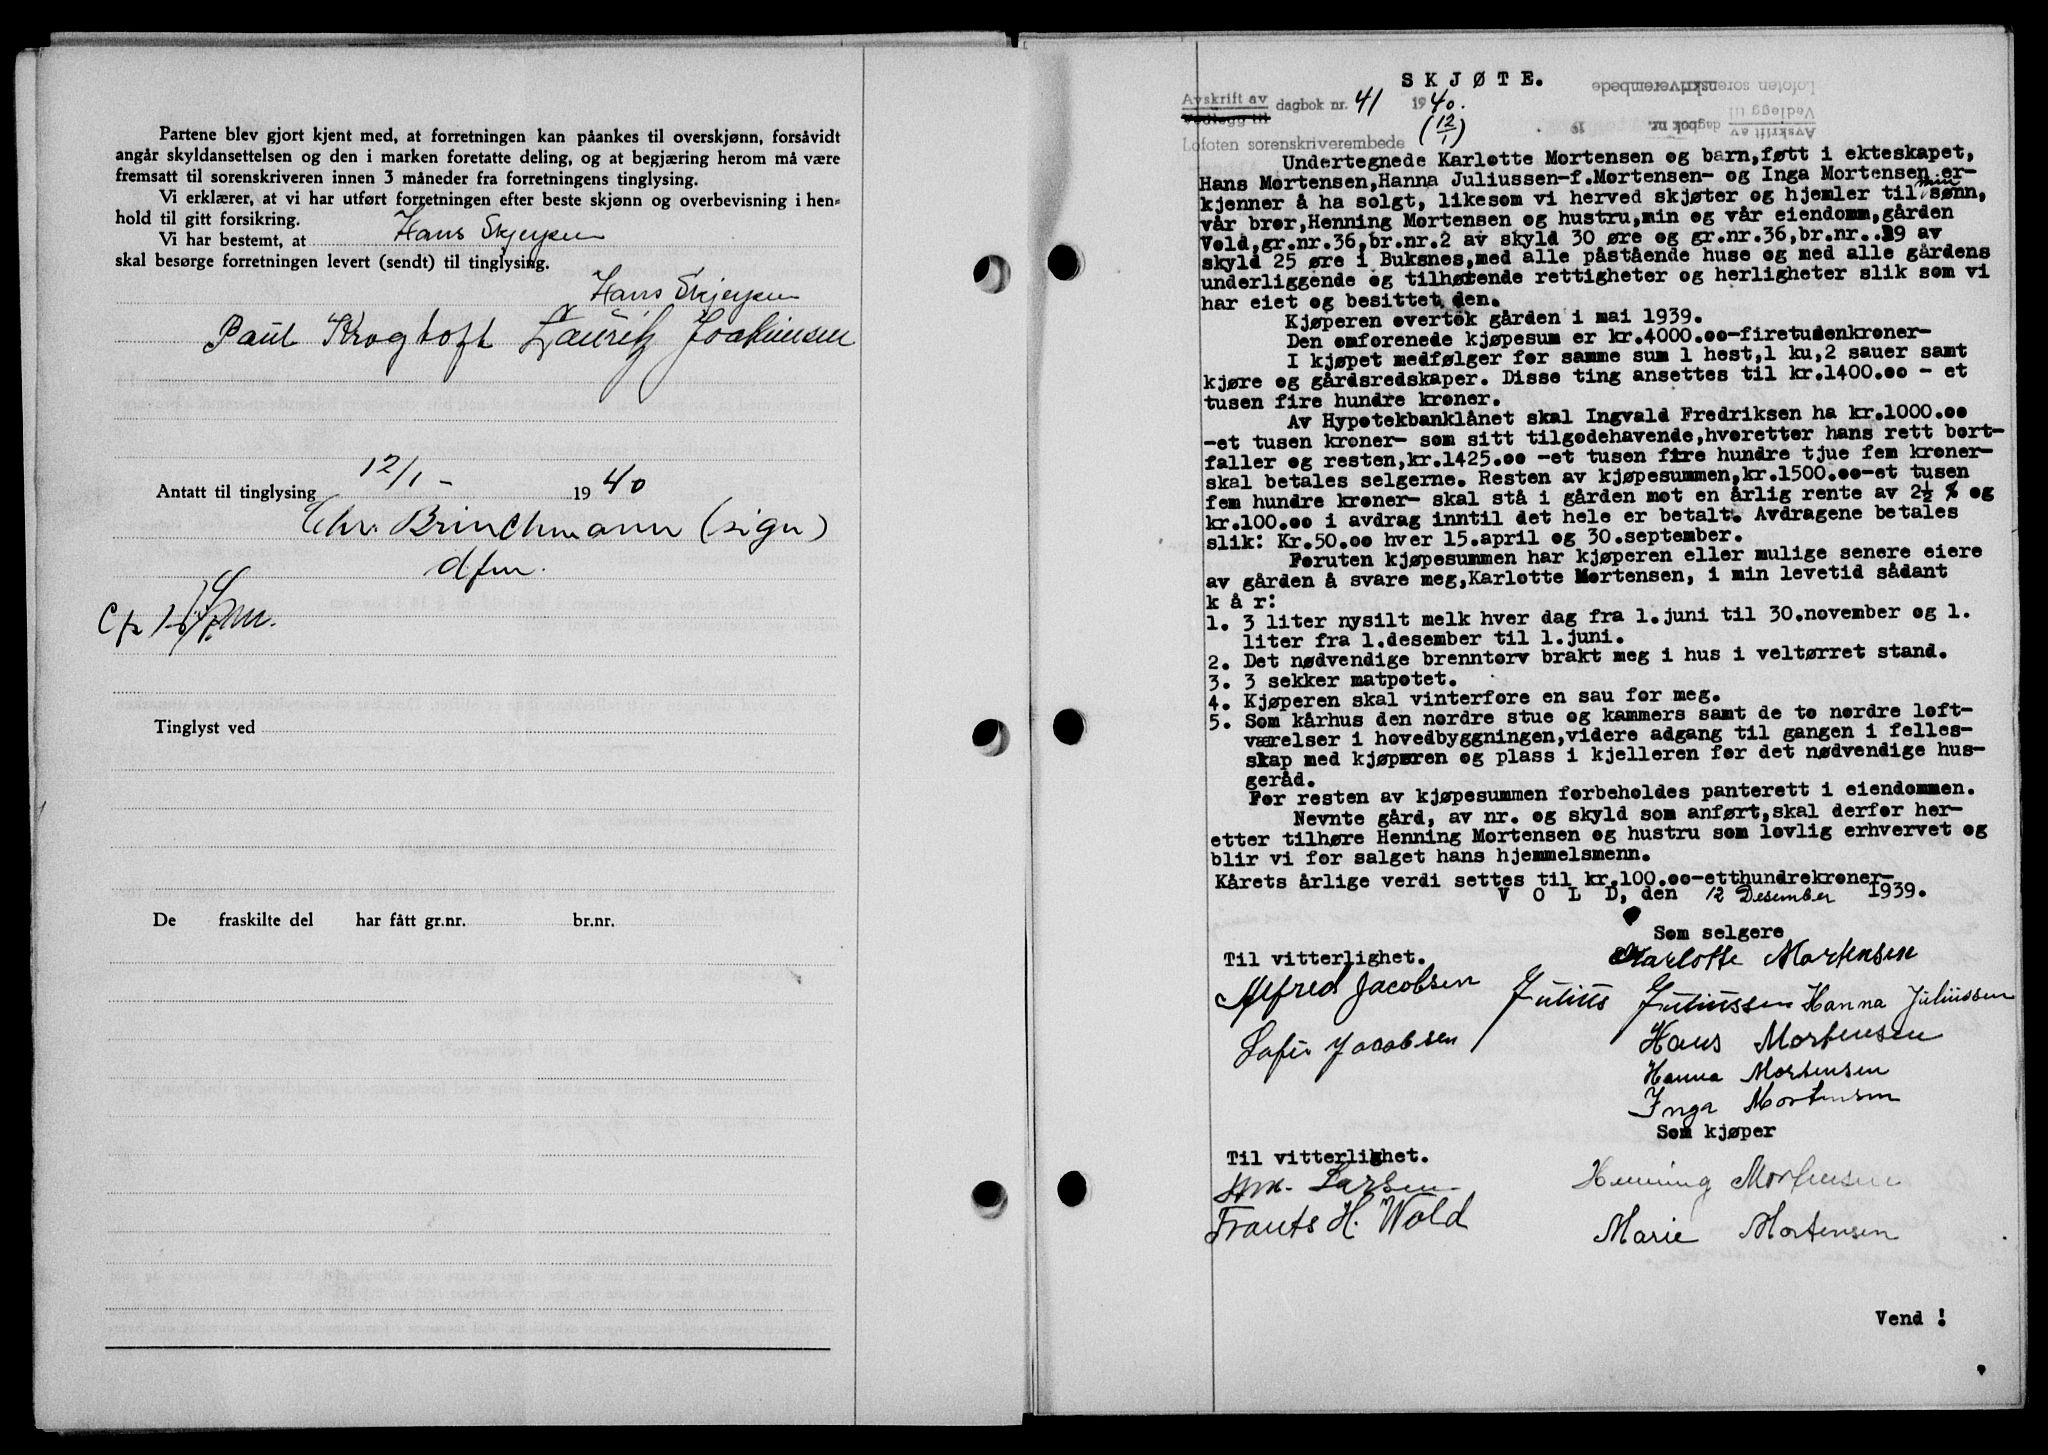 Partene blev gjort kjent med, at forretningen kan påankes til overskjønn, forsåvidt
angår skyldansettelsen og den i marken foretatte deling, og at begjæring herom må være
fremsatt til sorenskriveren innen 3 måneder fra forretningens tinglysing.
Vi erklærer, at vi har utført forretningen efter beste skjønn og overbevisning i hen=
hold til gitt forsikring.
Vi har bestemt, at Hans Skjerpen
skal besørge forretningen levert (sendt) til tinglysing.
Hans Skjerpen
Paul Krogtoft Lauritz Joakimsen
Antatt til tinglysing 12/1 - 1940
Chr. Brinchmann (sign)
dfm.
Tinglyst ved
De fraskilte del har fått gr.nr. br.nr.
SKJØTE.
Avskrift av dagbok nr. 41 1940.
Vedlegg til (12/1)
Lofoten sorenskriverembede
Lofoten sorenskriverembede
Vedlegg til
Avskrift av dagbok nr. 19
Undertegnede Karlotte Mortensen og barn,født i ekteskapet,
Hans Mortensen,Hanna Juliussen-f.Mortensen- og Inga Mortensen er-
kjenner å ha solgt, likesom vi herved skjøter og hjemler til min sønn,
vår bror,Henning Mortensen og hustru,min og vår eiendomm,gården
Vold,gr.nr.36,br.nr.2 av skyld 30 øre og gr.nr.36,br.nr..39 av
skyld 25 øre i Buksnes,med alle påstående huse og med alle gårdens
underliggende og tilhørende rettigheter og herligheter slik som vi
har eiet og besittet den.
Kjøperen overtok gården i mai 1939.
Den omforenede kjøpesum er kr.4000.oo-firetudenkroner-
I kjøpet medfølger for samme sum 1 hest,1 ku,2 sauer samt
kjøre og gårdsredskaper. Disse ting ansettes til kr.1400.oo - et
tusen fire hundre kroner.
Av Hypotekbanklånet skal Ingvald Fredriksen ha kr.1000.oo
-et tusen kroner- som sitt tilgodehavende,hvoretter hans rett bort-
faller og resten,kr.1425.oo -et tusen fire hundre tjue fem kroner-
skal betales selgerne. Resten av kjøpesummen,kr.1500.oo-et tusen
fem hundre kroner- skal stå i gården mot en årlig rente av 2½ % og
kr.100.oo i avdrag inntil det hele er betalt. Avdragene betales
slik: Kr.50.oo hver 15.april og 30.september.
Foruten kjøpesummen har kjøperen eller mulige senere eiere
av gården å svare meg,Karlotte Mortensen, i min levetid sådant
k å r:
1. 3 liter nysilt melk hver dag fra 1.juni til 30.november og 1.
liter fra 1.desember til 1.juni.
2. Det nødvendige brenntorv brakt meg i hus i veltørret stand.
3. 3 sekker matpotet.
4. Kjøperen skal vinterfore en sau for meg.
5. Som kårhus den nordre stue og kammers samt de to nordre loft-
værelser i hovedbyggningen,videre adgang til gangen i felles-
skap med kjøperen og plass i kjelleren for det nødvendige hus-
geråd.
For resten av kjøpesummen forbeholdes panterett i eiendommen.
Nevnte gård, av nr. og skyld som anført,skal derfor her-
etter tilhøre Henning Mortensen og hustru som lovlig erhvervet og
blir vi for salget hans hjemmelsmenn.
Kårets årlige verdi settes til kr.100.oo-etthundrekroner-
V O L D, den 12 Desember 1939.
Som selgere
Til vitterlighet. Karlotte Mortensen
Alfred Jacobsen Julius Juliussen Hanna Juliussen
Sofie Jacobsen Hans Mortensen
Hanna Mortensen
Inga Mortensen
Som kjøper
Til vitterlighet.
Larsen Henning Mortensen
Frants H. Wold Marie Mortensen
Vend !